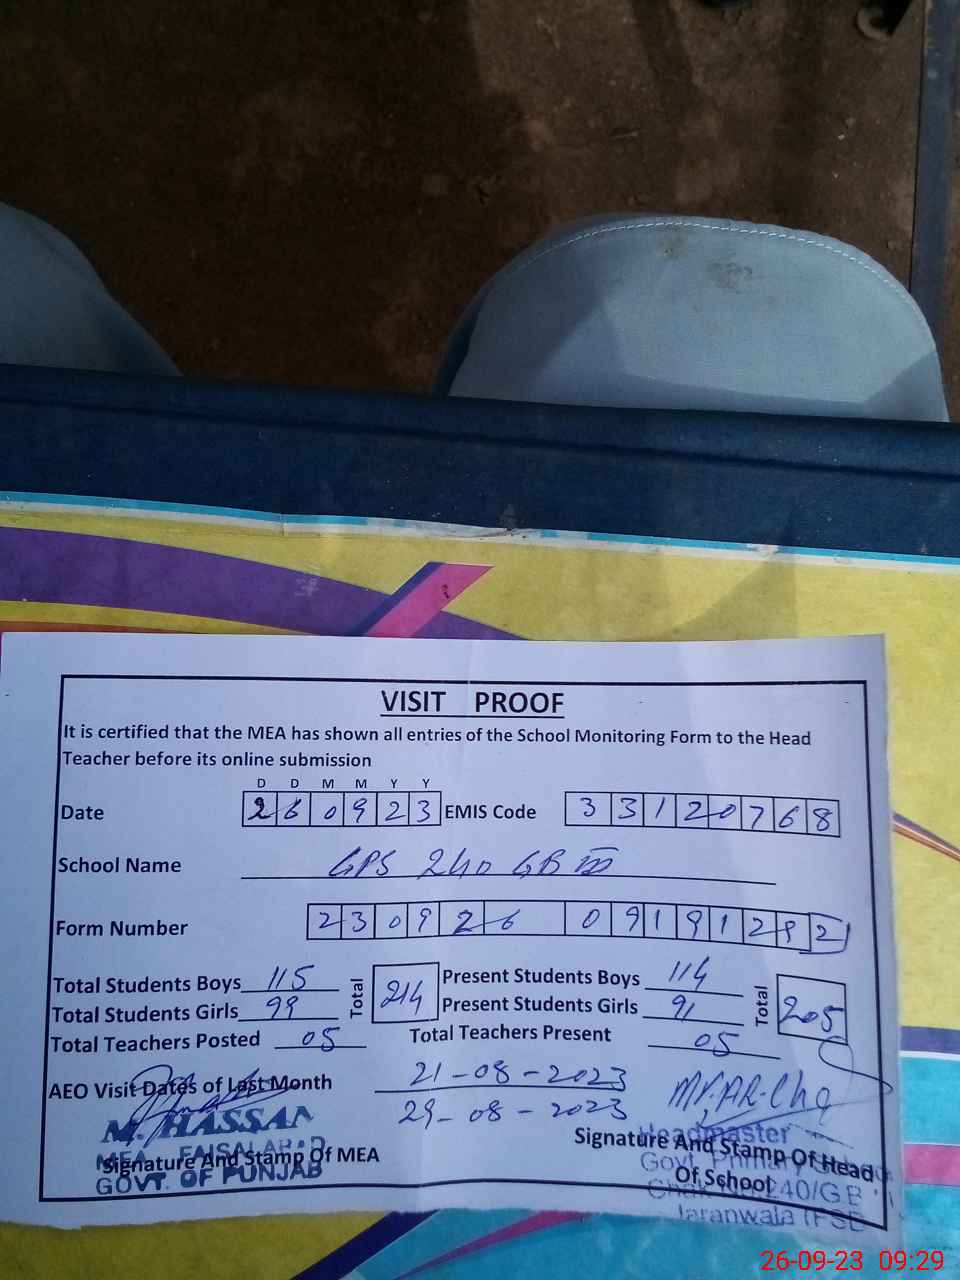 VISIT PROOF
It is certified that the MEA has shown all entries of the School Monitoring Form to the Head
Teacher before its online submission
D D M M Y Y
Date 26 09 23 EMIS Code 33120768
School Name GPS 240 GB III
Form Number 230926 09191292
Total Students Boys 115 Total 214 Present Students Boys 114 Total 205
Total Students Girls 99 Present Students Girls 91
Total Teachers Posted 05 Total Teachers Present 05
AEO Visit Dates of Last Month 21-08-2023
29-08-2023
M. HASSAN
MEA FAISALABAD
GOVT. OF PUNJAB
Signature And Stamp Of MEA
Headmaster
Signature And Stamp Of Head
Of School
Govt. Primary
Chak No.240/GB
Jaranwala (FSD
26-09-23 09:29